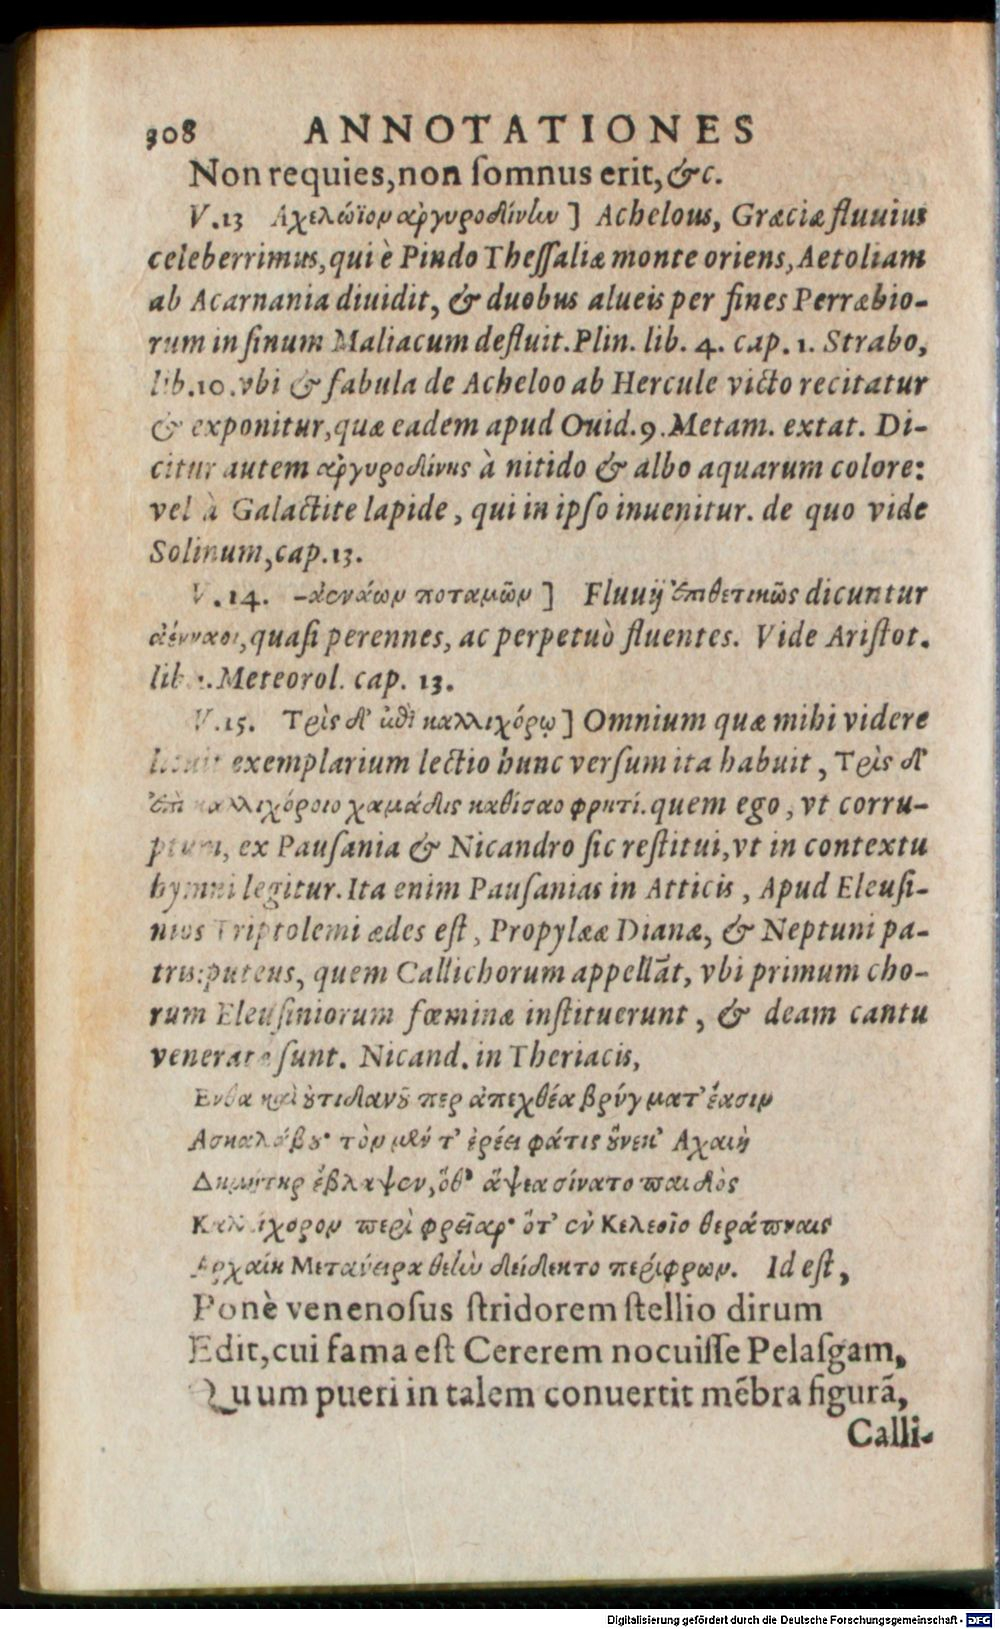 308 ANNOTATIONES
Non requies, non ſomnus erit, &c.
V.13 Αχελώϊον αργυροδίνην] Achelous, Græciæ fluuius
celeberrimus, qui è Pindo Theſſaliæ monte oriens, Aetoliam
ab Acarnania diuidit, & duobus alueis per fines Perræbio-
rum in ſinum Maliacum defluit. Plin. lib. 4. cap. 1. Strabo,
lib.10. vbi & fabula de Acheloo ab Hercule victo recitatur
& exponitur, quæ eadem apud Ouid. 9. Metam. extat. Di-
citur autem αργυροδίνης à nitido & albo aquarum colore:
vel à Galactite lapide, qui in ipſo inuenitur. de quo vide
Solinum, cap.13.
V.14. -ἀενάων ποταμῶν] Fluuij ἐπιθετικῶς dicuntur
ἀένναοι, quaſi perennes, ac perpetuò fluentes. Vide Ariſtot.
lib. Meteorol. cap. 13.
V.15. Τρὶς δ' ἐπὶ καλλιχόρῳ] Omnium quæ mihi videre
licuit exemplarium lectio hunc verſum ita habuit, Τρὶς δ'
ἐπὶ καλλιχόροιο χαμάδις καθίσαο φρητί. quem ego, vt corru-
ptum, ex Pauſania & Nicandro ſic reſtitui, vt in contextu
hymni legitur. Ita enim Pauſanias in Atticis, Apud Eleuſi-
nios Triptolemi ædes eſt, Propylææ Dianæ, & Neptuni pa-
tris: puteus, quem Callichorum appellāt, vbi primum cho-
rum Eleuſiniorum fœminæ inſtituerunt, & deam cantu
veneratæ ſunt. Nicand. in Theriacis,
Ενθα καὶ ȣ̓τιδανȣ͂ περ ἀπεχθέα βρύγματ' ἔασιν
Ασκαλάβȣ· τὸν μέν τ' ἐρέει φάτις ȣ̔́νεκ' Αχαιὴ
Δημήτηρ ἔβλαψεν, ὅθ' ἅψεα σίνατο παιδὸς
Καλλίχορον περὶ φρεῖαρ· ὅτ' ἐν Κελεοῖο θεράπναις
Αρχαίη Μετάνειρα θεὴν δείδεκτο περίφρων. Id eſt,
Ponè venenoſus ſtridorem ſtellio dirum
Edit, cui fama eſt Cererem nocuiſſe Pelaſgam,
Quum pueri in talem conuertit mēbra figurā,
Calli-
Digitalisierung gefördert durch die Deutsche Forschungsgemeinschaft - DFG